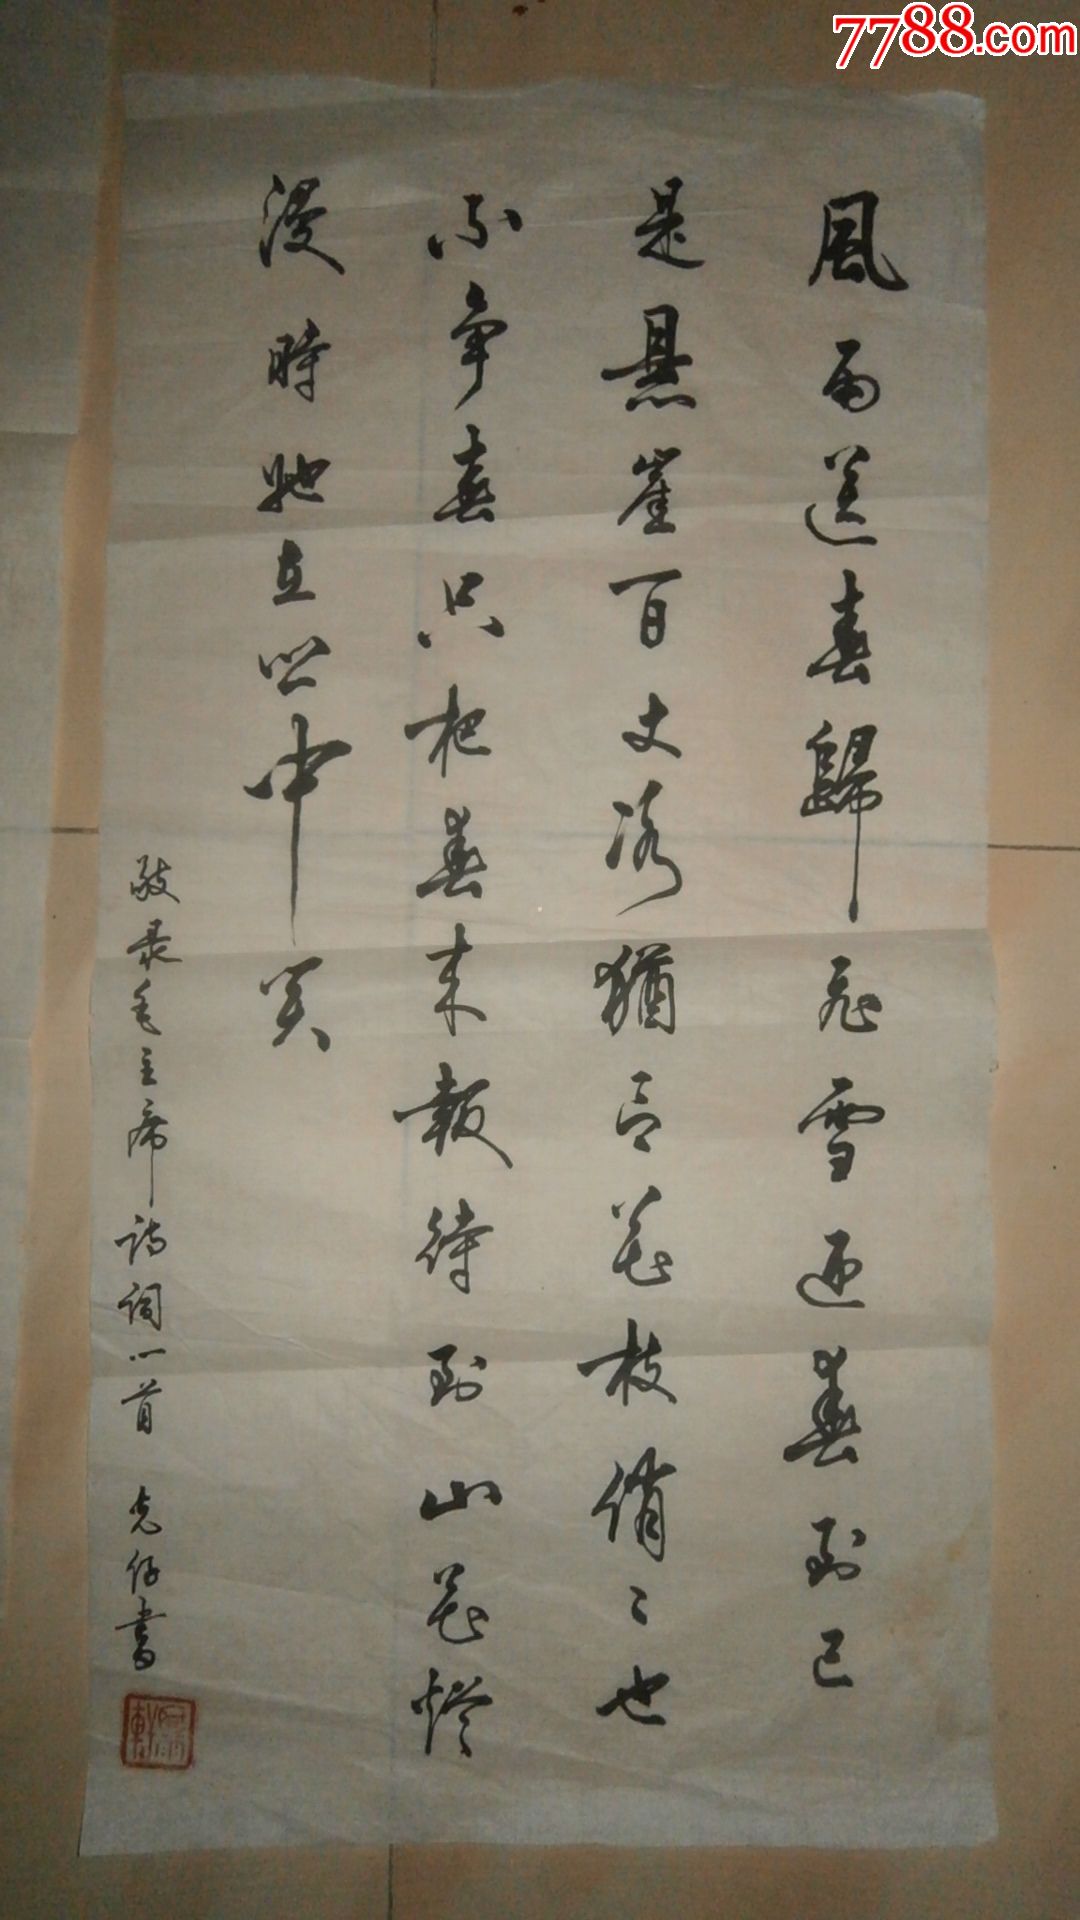 7788.com
風雨送春歸飛雪迎春到已
是悬崖百丈冰猶有花枝俏々也
不争春只把春来報待到山花烂
漫時她在丛中笑
敬录毛主席诗词一首 書